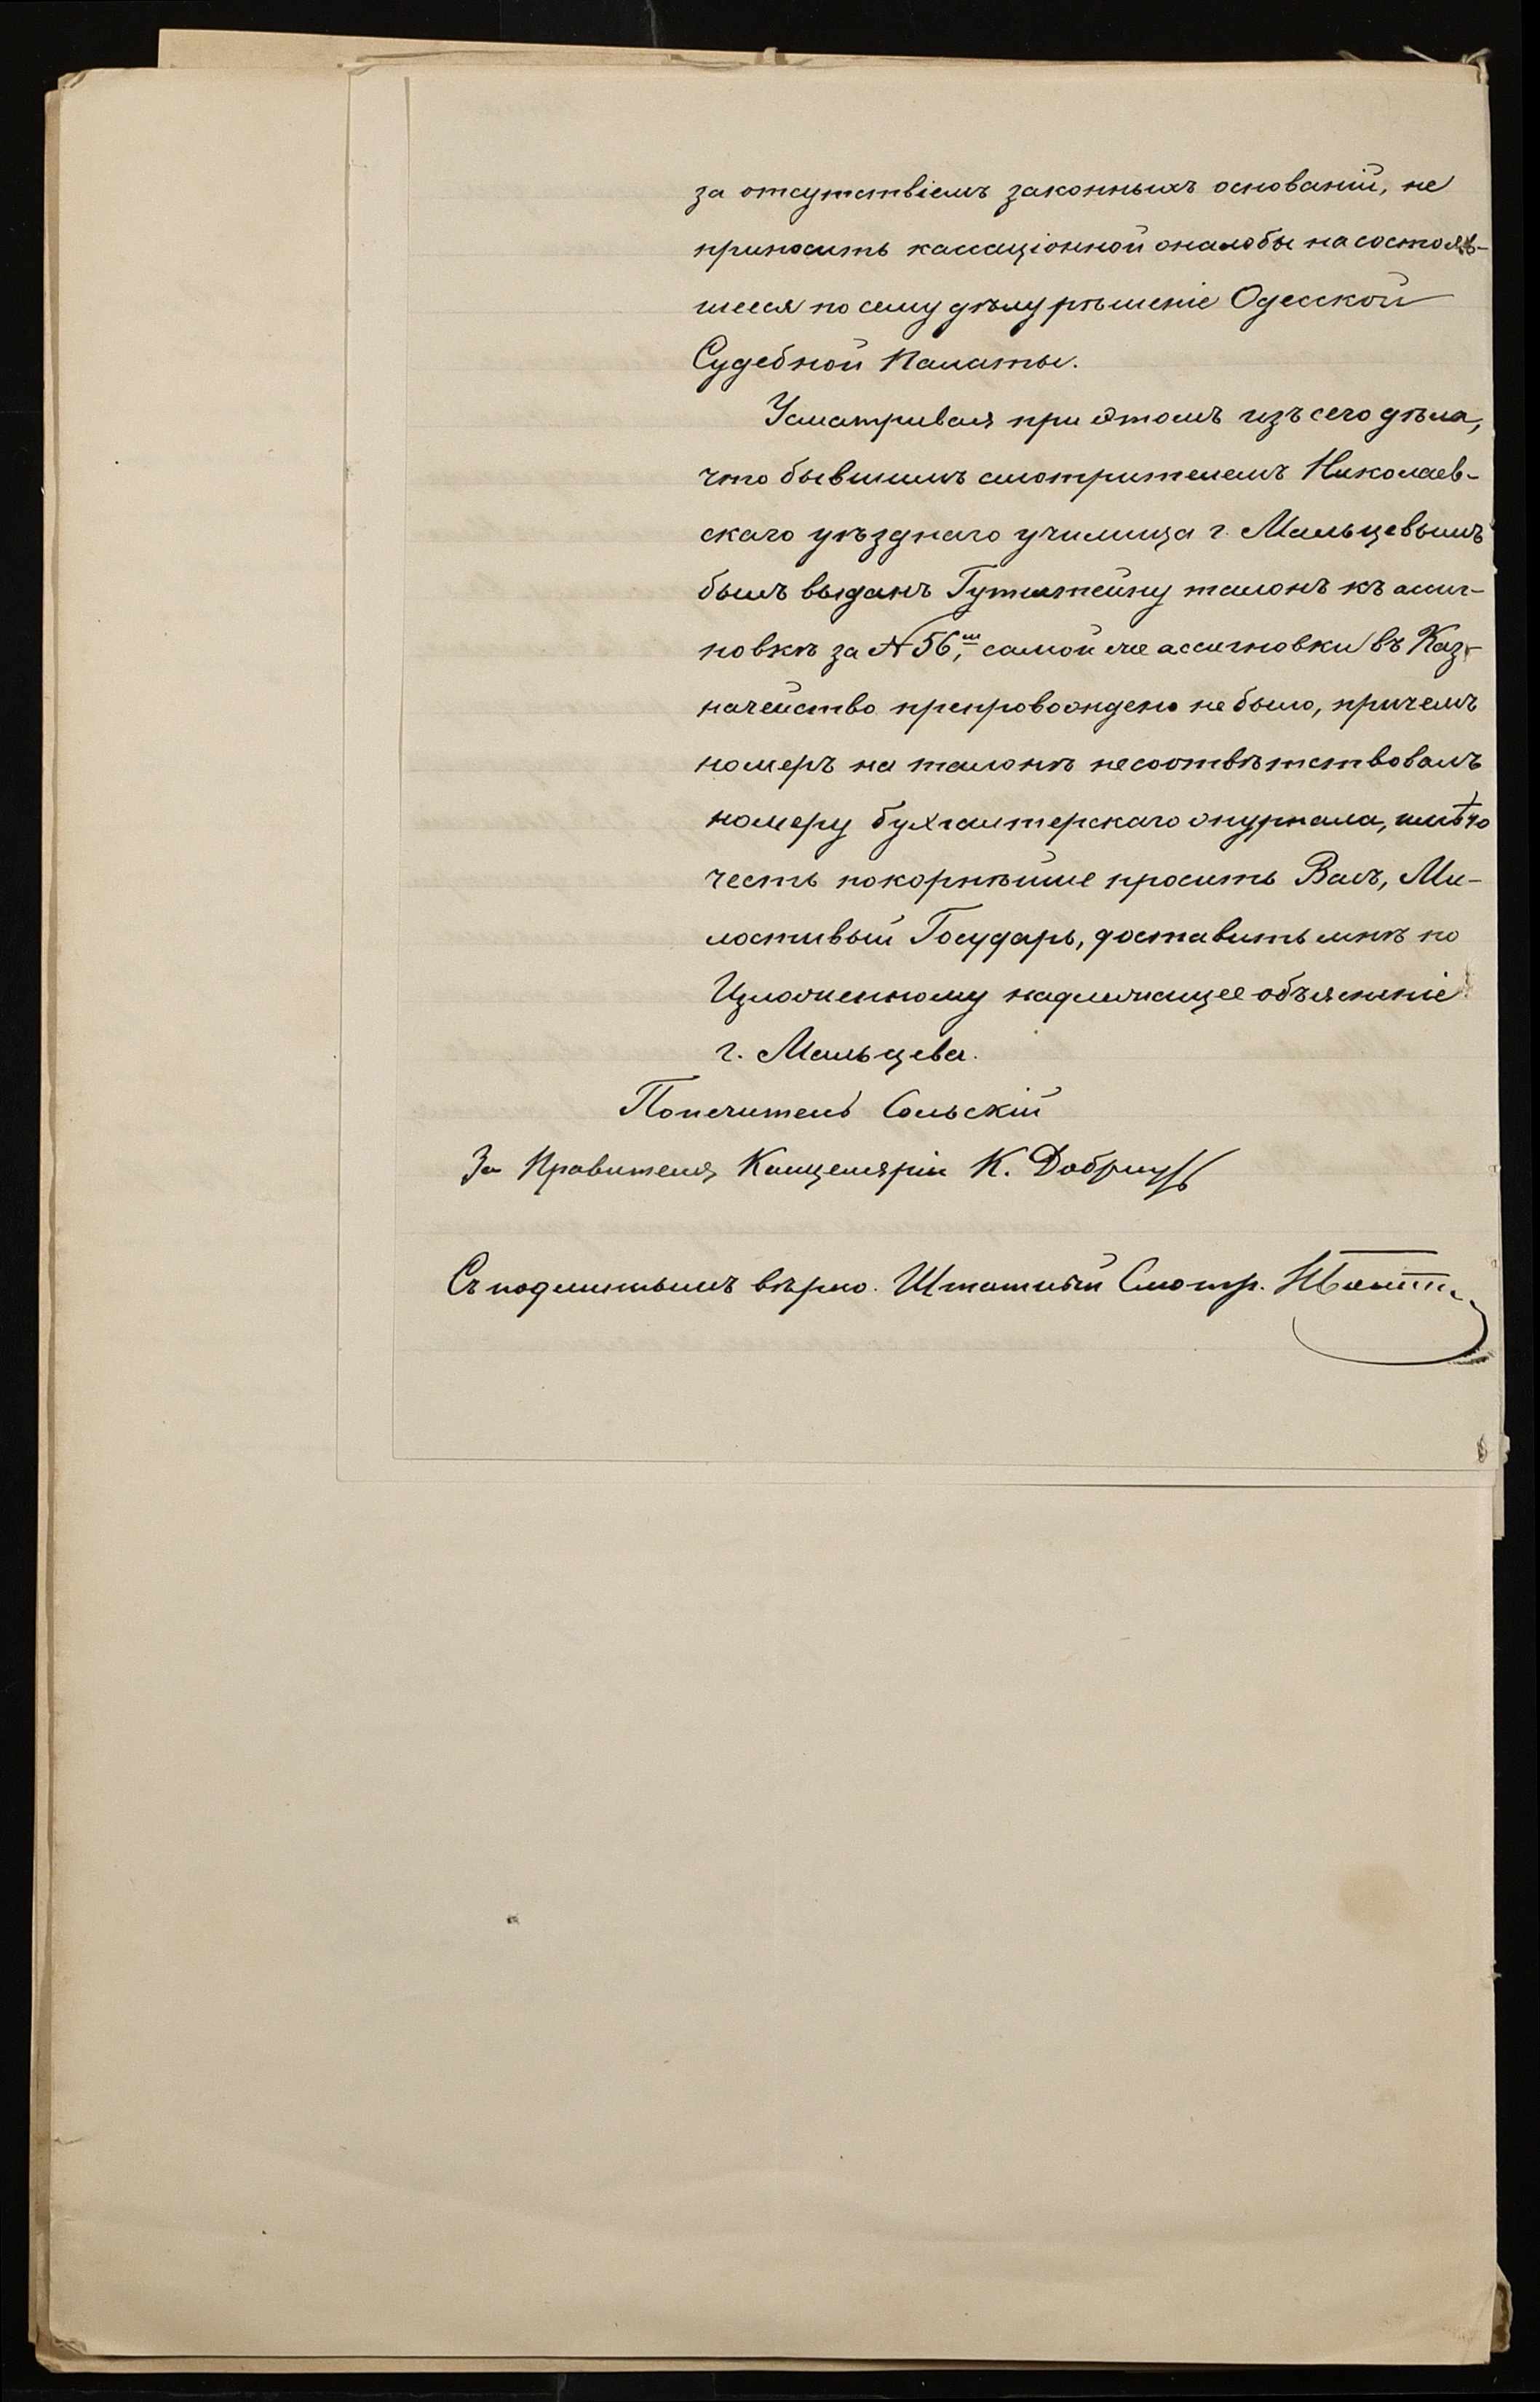 за отсутствіемъ законныхъ основаній, не
приносить кассаціонной жалобы на состояв-
шееся по сему дѣлу рѣшеніе Одесской
Судебной Палаты.
Усматривая при этомъ изъ сего дѣла,
что бывшимъ смотрителемъ Николаев-
скаго уѣзднаго училища г. Мальцевымъ
былъ выданъ Гутштейну талонъ къ ассиг-
новкѣ за № 56, самой же ассигновки въ Каз-
начейство препровождено не было, причемъ
номеръ на талонѣ несоотвѣтствовалъ
номеру бухгалтерскаго журнала, имѣю
честь покорнѣйше просить Васъ, Ми-
лостивый Государь, доставить мнѣ по
Изложенному надлежащее объясненіе
г. Мальцева.
Попечитель Сольскій
За Правителя Канцеляріи К.
Съ подлиннымъ вѣрно. Штатный Смотр.